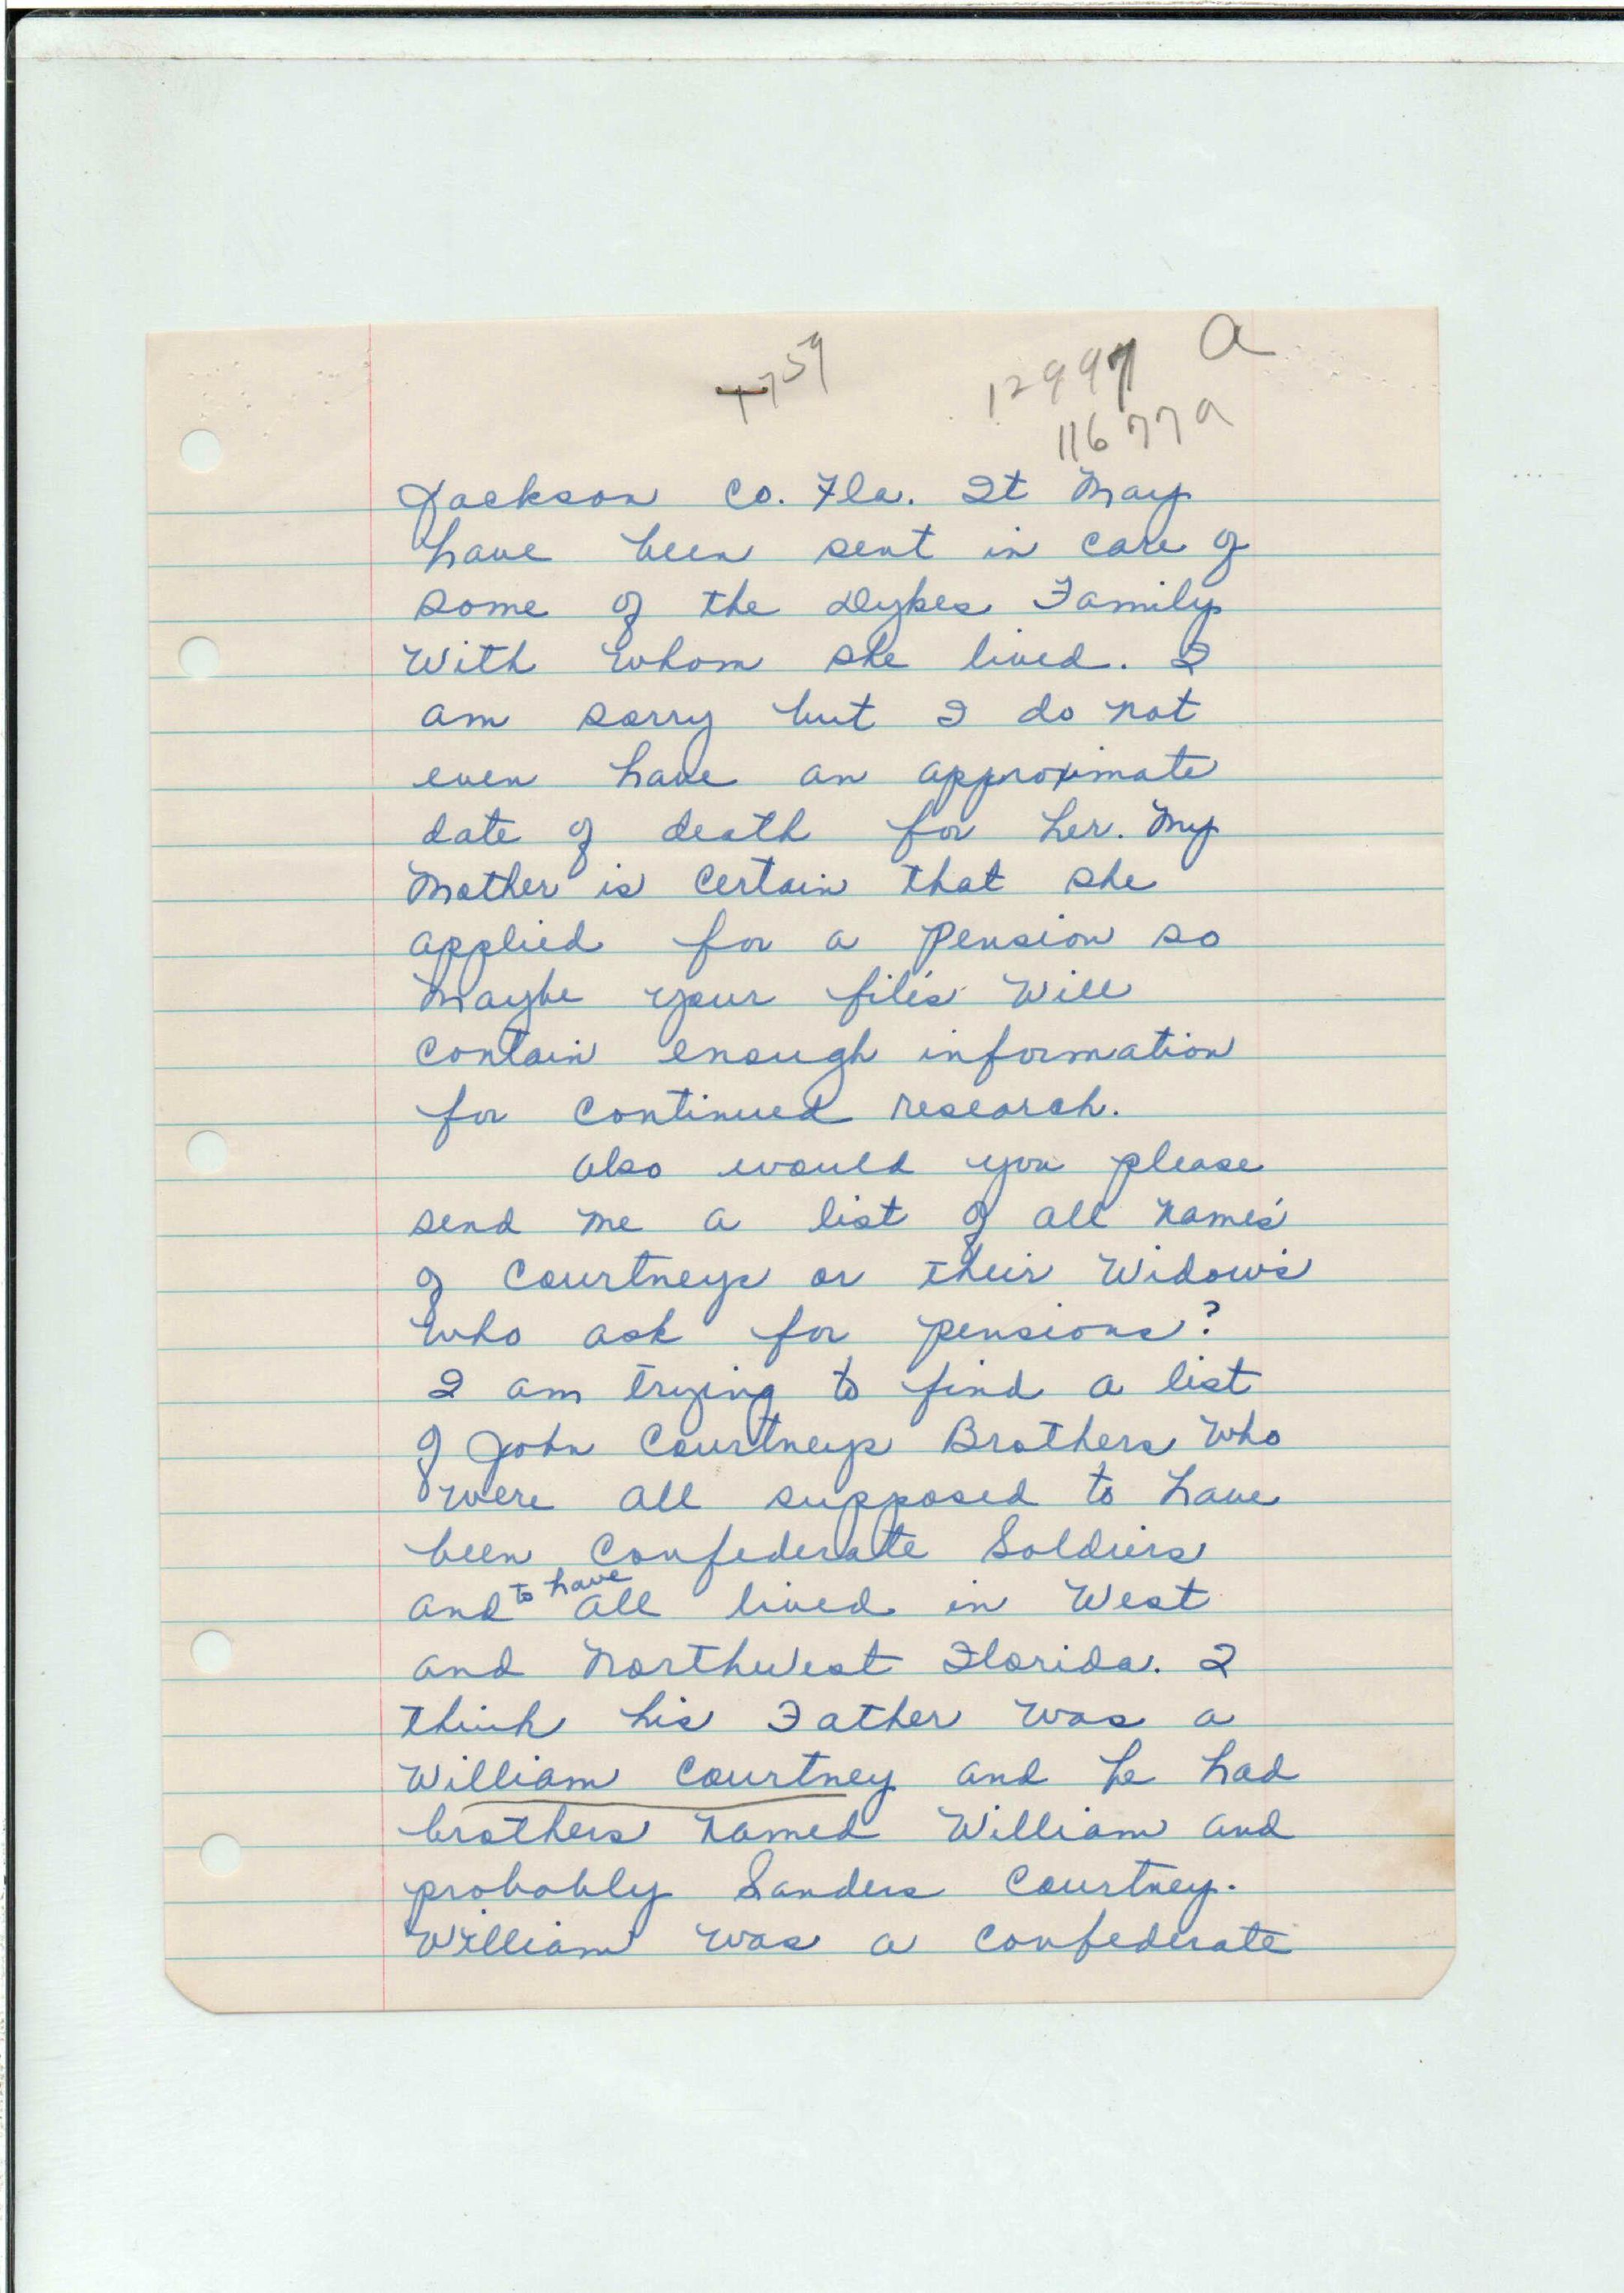 4759
12997 a
11677a
Jackson Co. Fla. It May
have been sent in care of
some of the Dykes Family
With whom she lived. I
am sorry but I do not
even have an approximate
date of death for her. My
Mother is certain that she
applied for a pension so
Maybe your file's Will
contain enough information
for continued research.
Also would you please
send me a list of all name's
of Courtneys or their Widow's
who ask for pensions?
I am trying to find a list
of John Courtneys Brothers Who
were all supposed to have
been Confederate Soldiers
and to have all lived in West
and NorthWest Florida. I
think his Father was a
William Courtney and he had
brothers named William and
probably Sanders Courtney.
William was a Confederate